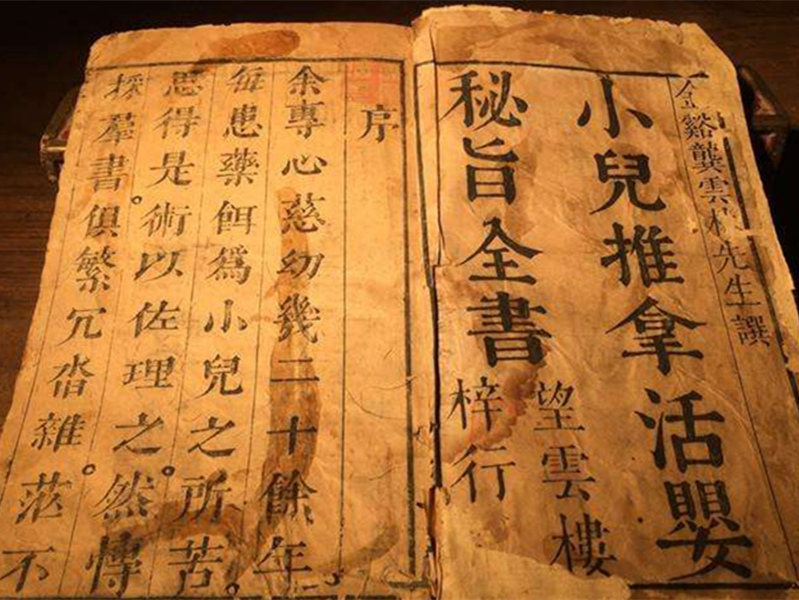 金谿龔雲林先生譔
小兒推拿活嬰
秘旨全書
望雲樓
梓行
序
余專心慈幼幾二十餘年。
每患藥餌爲小兒之所苦。
思得是術以佐理之。然慱
採羣書。俱繁冗沓雜。茫不